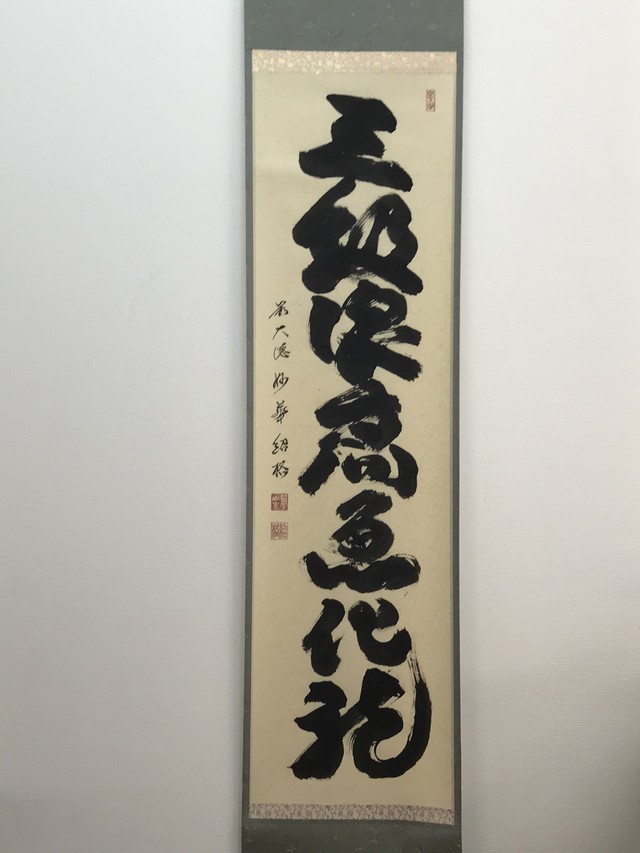 三級浪高魚化龍
前大徳妙華紹格